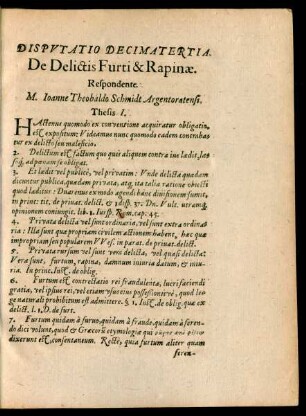 DISPVTATIO DECIMATERTIA.
De Delictis Furti & Rapinæ.
Respondente.
M. Ioanne Theobaldo Schmidt Argentoratensi.
Thesis I.
HActenus quomodo ex conventione acquiratur obligatio,
est expositum; Videamus nunc quomodo eadem contrahatur
ex delicto seu maleficio.
2. Delictum est factum quo quis alium contra ius ladit,
& ad pœnam se obligat.
3. Et id vel publicum, vel privatim: Vnde delicta quædam
dicuntur publica, quædam privata, atq; ita talia ratione obiecti
quod læditur: Duæ enim modo agendi hanc divisionem sumit,
in print: tit. de privat. delict. & 1 diss. 37. Dn. Vult. utramq;
opinionem coniungit. lib. 1. Iussp. Rom. cap: 45.
4. Privata delicta vel sunt ordinaria, vel sunt extra ordinaria:
Illa sunt quæ propriam civilem actionem habent, hæc quæ
impropriam seu popularem VVes. in parat. de privat. delict.
5. Privata rursum vel sunt vera delicta, vel quasi delicta:
Vera sunt, furtum, rapina, damnum iniuria datum, & iniuria.
In princ. Inst. de oblig.
6. Furtum est contrectatio rei fraudulenta, lucri faciendi
gratia, vel ipsius rei, vel etiam usus eius possessionisve, quod lege
naturali prohibitum est admittere. § 1. Inst. de oblig. quæ ex
delict. l. 1. D. de furt.
7. Furtum quidam à furuo, quidam à fraude, quidam à ferendo
dici volunt, quod & Græcorum etymologiæ qui
dixerunt est consentaneum. Rectè, quia furtum aliter quam
feren-